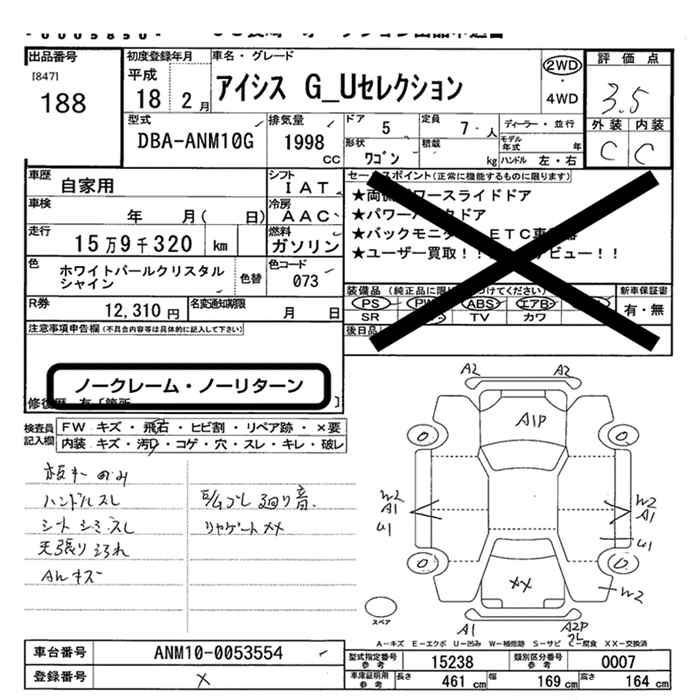 出品番号
[847]
188
初度登録年月
平成
18 2 月
車名・グレード
アイシス G_Uセレクション
2WD
・
4WD
評価点
3.5
外装 内装
C C
型式
DBA-ANM10G
排気量
1998
CC
ドア
5
定員
7 人
形状
ワゴン
積載
kg
ディーラー・並行
モデル年式 年
ハンドル 左・右
車歴
自家用
シフト
IAT
車検
年 月( 日)
冷房
AAC
走行
15万9千320 km
燃料
ガソリン
色
ホワイトパールクリスタル
シャイン
色替
色コード
073
R券
12,310 円
名変通知期限
月 日
セールスポイント(正常に機能するものに限ります)
ワースライドドア
★パワー
ドア
★バックモニタ
ETC
★ユーザー買取!!
ビュー!!
装備品
(純正品に限
けてください)
PS
ABS
エアB
SR
TV
カワ
新車保証書
有・無
後日品
注意事項申告欄(不具合内容等は具体的に記入して下さい)
ノークレーム・ノーリターン
検査員
記入欄
FW キズ・飛石・ヒビ割・リペア跡・×要
内装 キズ・汚れ・コゲ・穴・スレ・キレ・破レ
ハンドルスレ
シート シミ スレ
天張り
キズ
廻り音
××
A2 A2
A1P
W2
A1
U1
W2
A1
U1
W2
××
A1
A2P
スペア
A-キズ E-エクボ U-凹み W-補修跡 S-サビ C-腐食 XX-交換済
車台番号
ANM10-0053554
登録番号
×
型式指定番号
参考
15238
類別区分番号
参考
0007
車庫証明用
参考
長さ
461 cm
幅
169 cm
高さ
164 cm